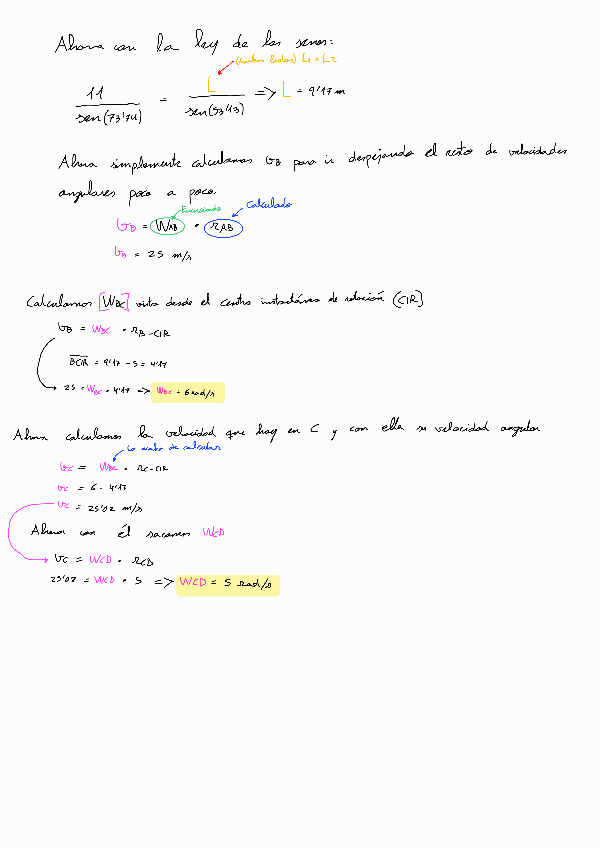 Ahora con la ley de los senos:
(Ambos lados) L1 = L2
11 / sen(73'74) = L / sen(53'13) => L = 9'17 m
Ahora simplemente calculamos VB para ir despejando el resto de velocidades
angulares poco a poco.
Enunciado
Calculado
VB = WAB · rAB
VB = 25 m/s
Calculamos [WBC] vista desde el centro instantáneo de rotación (CIR)
VB = WBC · rB-CIR
BCIR = 9'17 - 5 = 4'17
25 = WBC · 4'17 => WBC = 6 rad/s
Ahora calculamos la velocidad que hay en C y con ella su velocidad angular
Lo acabo de calcular
VC = WBC · rC-CIR
VC = 6 · 4'17
VC = 25'02 m/s
Ahora con él sacamos WCD
VC = WCD · rCD
25'02 = WCD · 5 => WCD = 5 rad/s